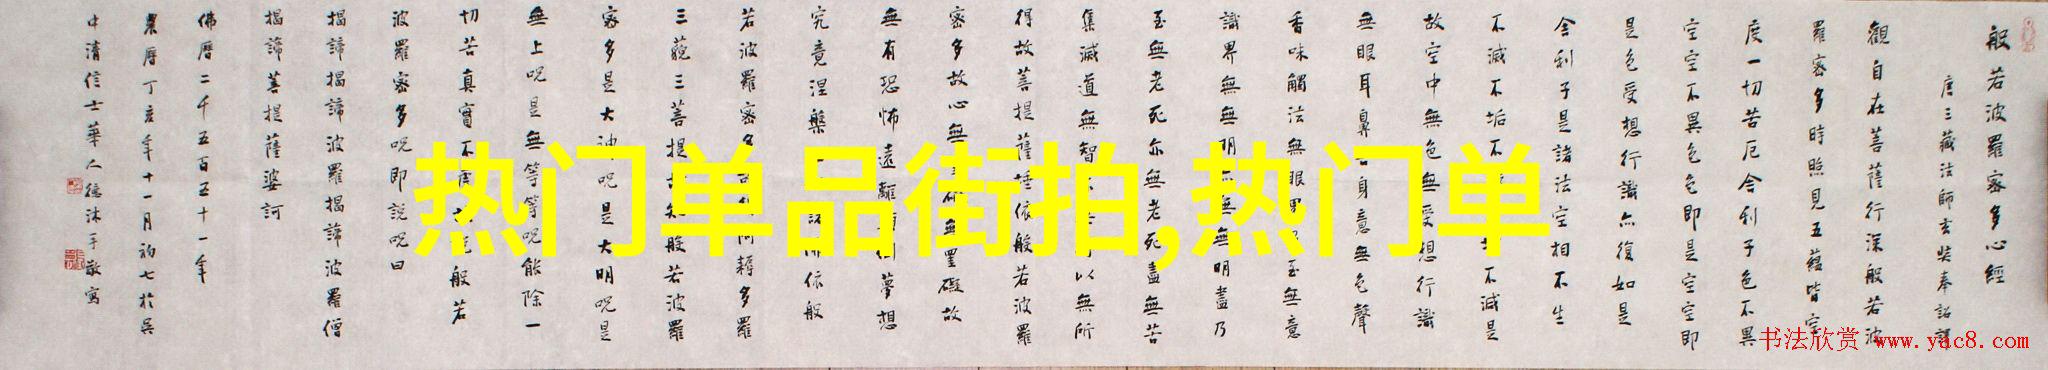 般若波羅蜜多心經
唐三藏法師玄奘奉詔譯
觀自在菩薩行深般若波
羅蜜多時照見五蘊皆空
度一切苦厄舍利子色不異
空空不異色色即是空空即
是色受想行識亦復如是
舍利子是諸法空相不生
不滅不垢不不減是
故空中無色無受想行識
無眼耳鼻舌身意無色聲
香味觸法無眼界至無意
識界無無明亦無無明盡乃
至無老死亦無老死盡無苦
集滅道無智以無所
得故菩提薩埵依般若波羅
蜜多故心無無罣礙故
無有恐怖遠離夢想
究竟涅槃依般
若波羅蜜多耨多羅
三藐三菩提知般若波羅
蜜多是大神呪是大明呪是
無上呪是無等等呪能除一
切苦真實不般若
波羅蜜多呪即說呪曰
揭諦揭諦波羅揭諦波羅僧
揭諦菩提薩婆訶
佛曆二千五百五十一年
農曆丁亥年十一月初七於吳
中清信士華人德沐手敬寫
热门单品街拍,热门单
书法欣赏 www.yac8.com